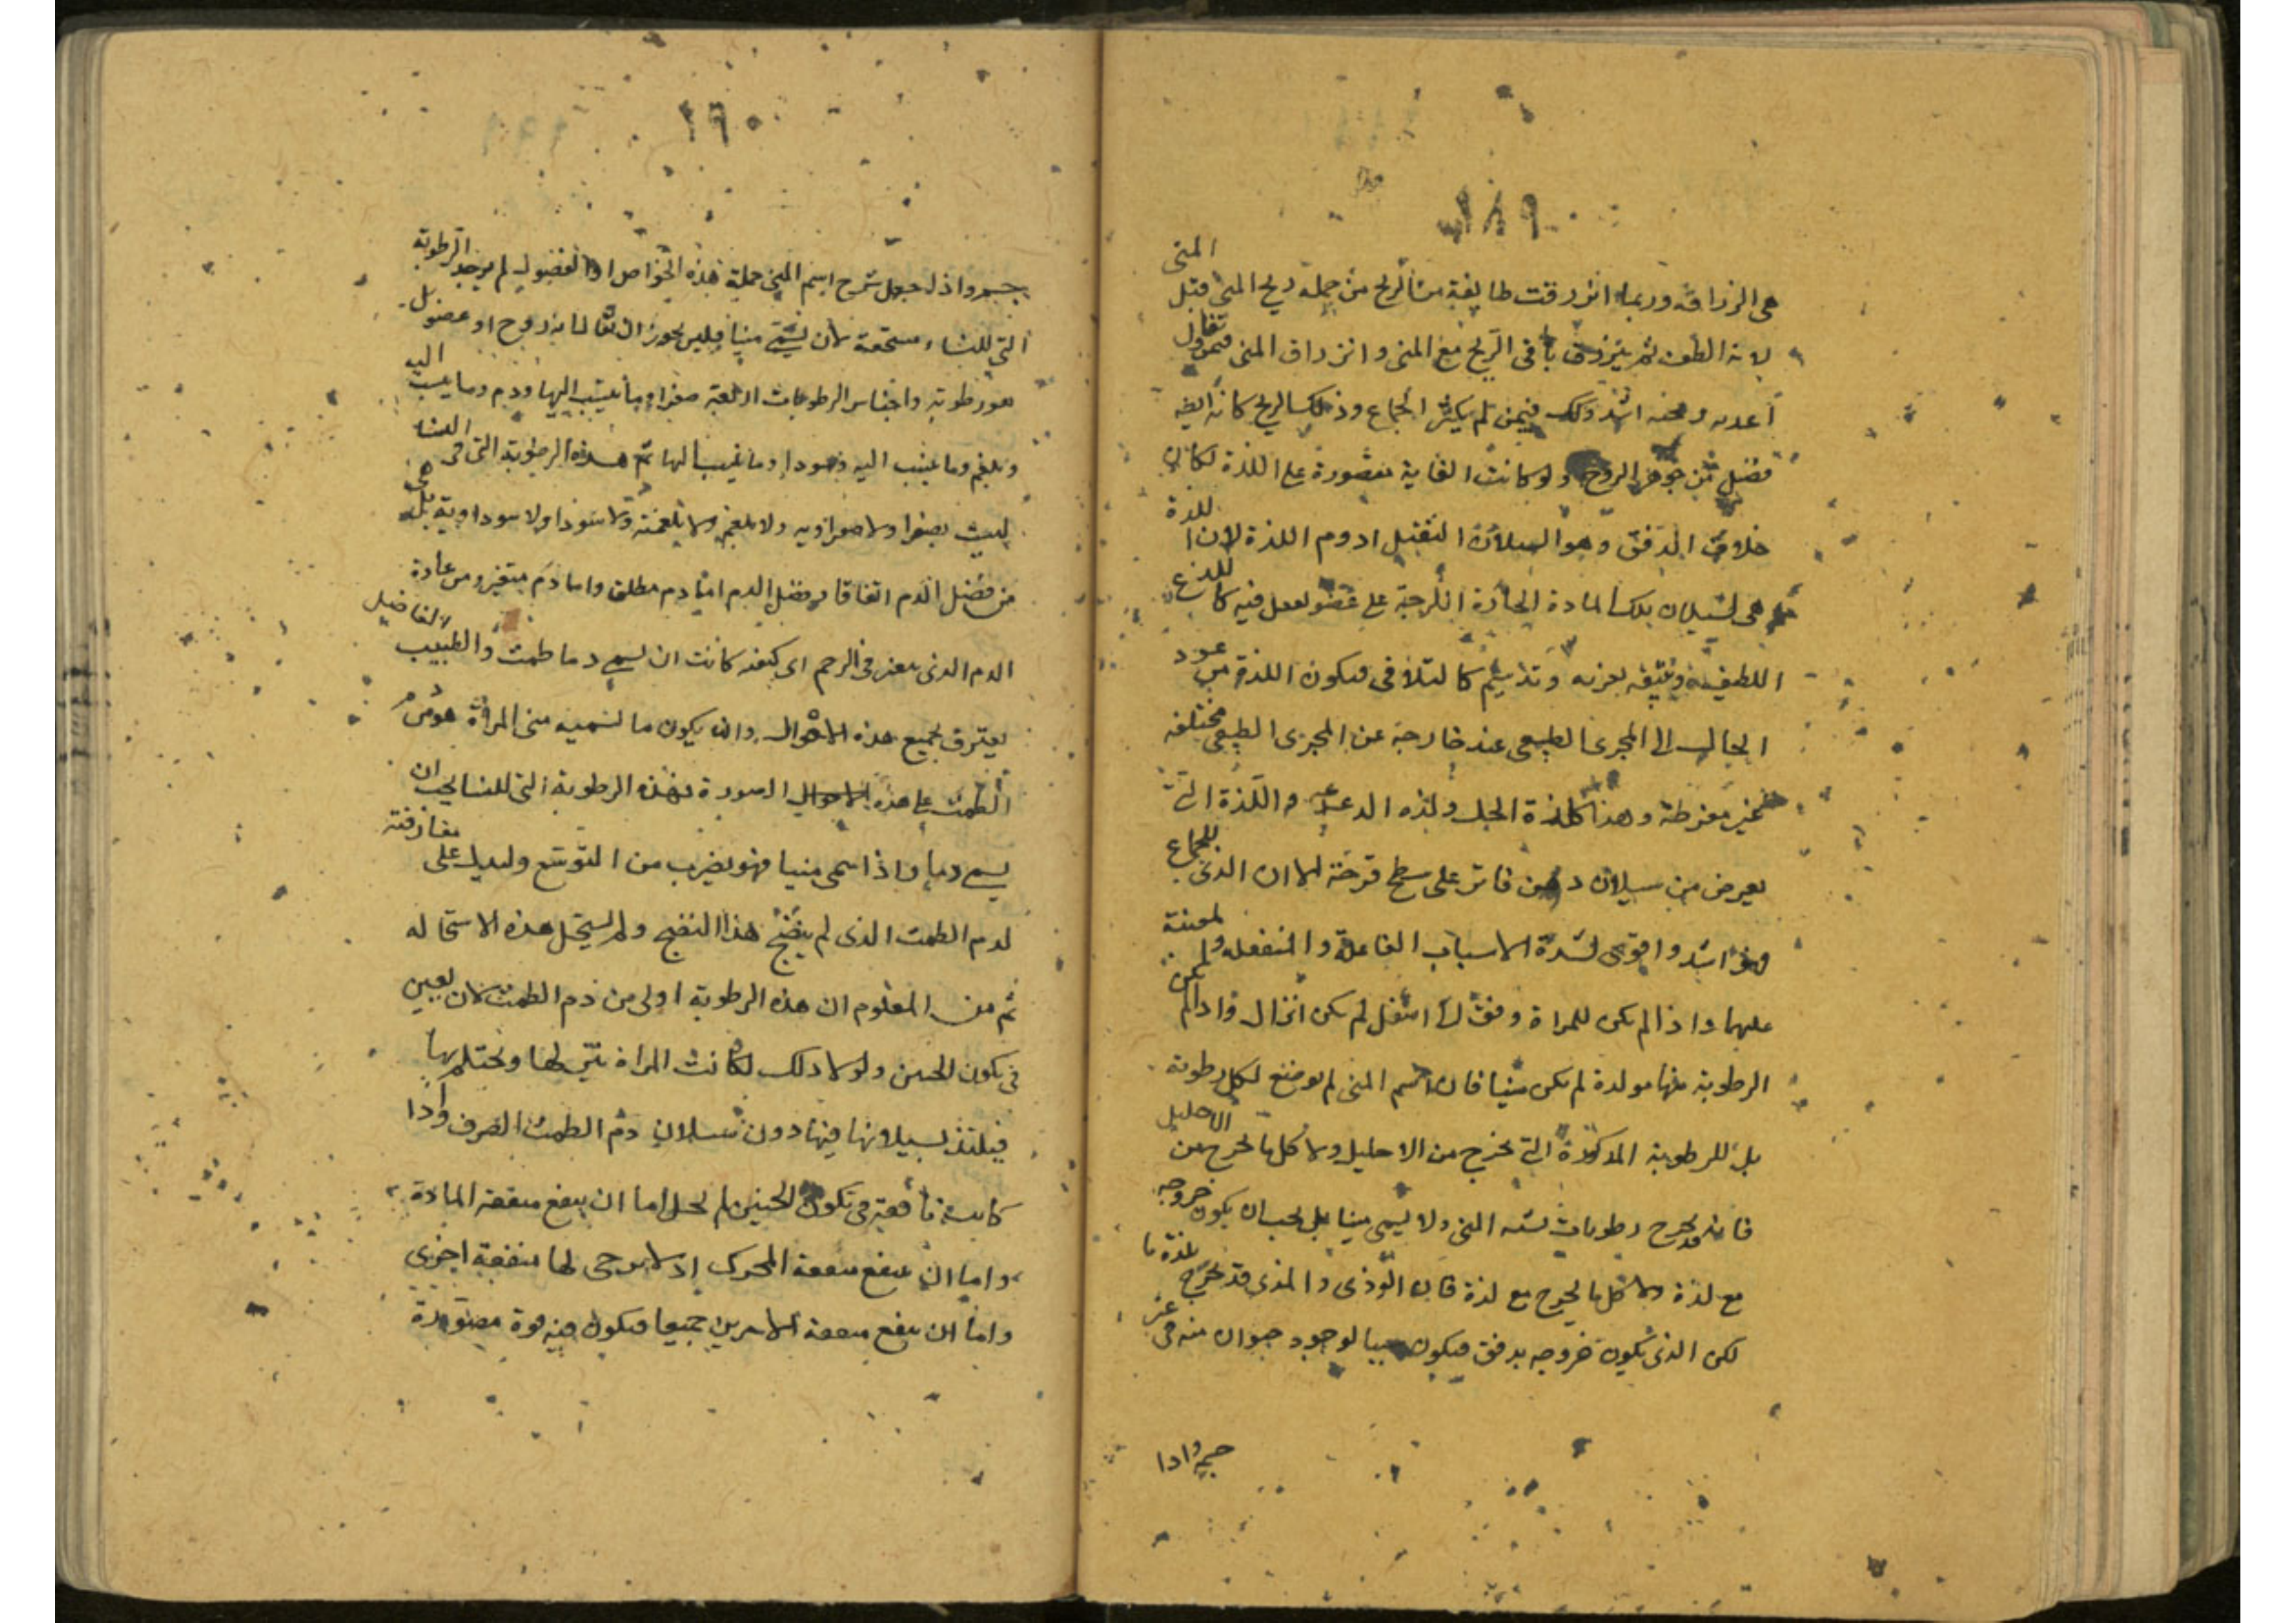 ١٨٩
هى الزراقة وربما انزرقت طايفة من الريح من جملة ريح المنى قبل المنى
لانه الطف ثم ينزرق باقى الريح مع المنى وانزراق المنى فيمن تقاول
اشد وذلك فيمن لم يكثر الجماع وذلك الريح كانه ايضه
فضل من جوهر الروح ولو كانت الغاية مقصورة على اللذة لكان
خلاف الدفق وهو السيلان الثقيل ادوم اللذة لان اللذة
هى لسيلان تلك المادة الحارة اللزجة على عضو فيه كاللذع
اللطيفة كالتلافى فيكون اللذة من عود
الحال الى المجرى الطبيعى عند خارجة عن المجرى الطبيعى مختلفه
غير مفرطة وهذا كلذة الحك ولذه الدغدغه واللذة التى
يعرض من سيلان دهن فاتر على سطح قرحة الا ان الذى للجماع
فهو اشد واقوى لشدة الاسباب الفاعلة والمنفعله ولمعينة
عليها واذا لم يكن للمراة دفق لما اسفل لم يكن انزال واذا لم يكن
الرطوبة منها مولدة لم يكن منيا فان اسم المنى لم يوضع لكل رطوبة
بل للرطوبة المذكورة التى تخرج من الاحليل ولا كلما يخرج من الاحليل
فانه قد يخرج رطوبات تشبه المنى ولا يسمى منيا بل يجب ان يكون خروجه
مع لذة ولا كلما يخرج مع لذة فان الوذى والمذى قد يخرج بلذة ما
لكن الذى يكون خروجه بدفق فيكون سببا لوجود حيوان منه فى غير
جسم واذا
١٩٠
جسم واذا جعل شرح اسم المنى جملة هذه الخواص او الفضول لم يوجد الرطوبة
التى للنساء مستحقة لان يسمى منيا فليس يجوز ان يقال انه روح او عضو بل
هو رطوبة واجناس الرطوبات اربعة صفرا وما ينسب اليها ودم وما ينسب اليه
وبلغم وما ينسب اليه وسودا وما ينسب اليها ثم هذه الرطوبة التى فى النسا
ليست بصفرا ولا صفراويه ولا بلغم ولا بلغمية ولا سودا ولا سوداوية بل هى
من فضل الدم اتفاقا وفضل الدم اما دم مطلق واما دم متغير ومن عادة
الدم الذى يتغير فى الرحم اى كيف كانت ان يسمى دما طمث والطبيب الفاضل
يعترف بجميع هذه الاحوال وان يكون ما نسميه منى المراة هو من دم
الطمث على هذه الاحوال الصورة فهذه الرطوبة التى للنسا يجب ان
يسمى دما واذا سمى منيا فهو بضرب من التوسع وليدل على مفارقته
لدم الطمث الذى لم ينضج هذا النضج ولم يستحل هذه الاستحاله
ثم من المعلوم ان هذه الرطوبة اولى من دم الطمث لان يعين
فى تكون الجنين ولولا ذلك لما كانت المراة ويحتلم بها
فيلتذ بسيلانها فيها دون سيلان دم الطمث الصرف واذا
كانت نافعة فى تكون الجنين لم يخل اما ان ينفع منفعة المادة
واما ان ينفع منفعة المحرك اذ لا يرجى لها منفعة اخرى
واما ان ينفع منفعة الامرين جميعا فيكون فيه قوة مصورة